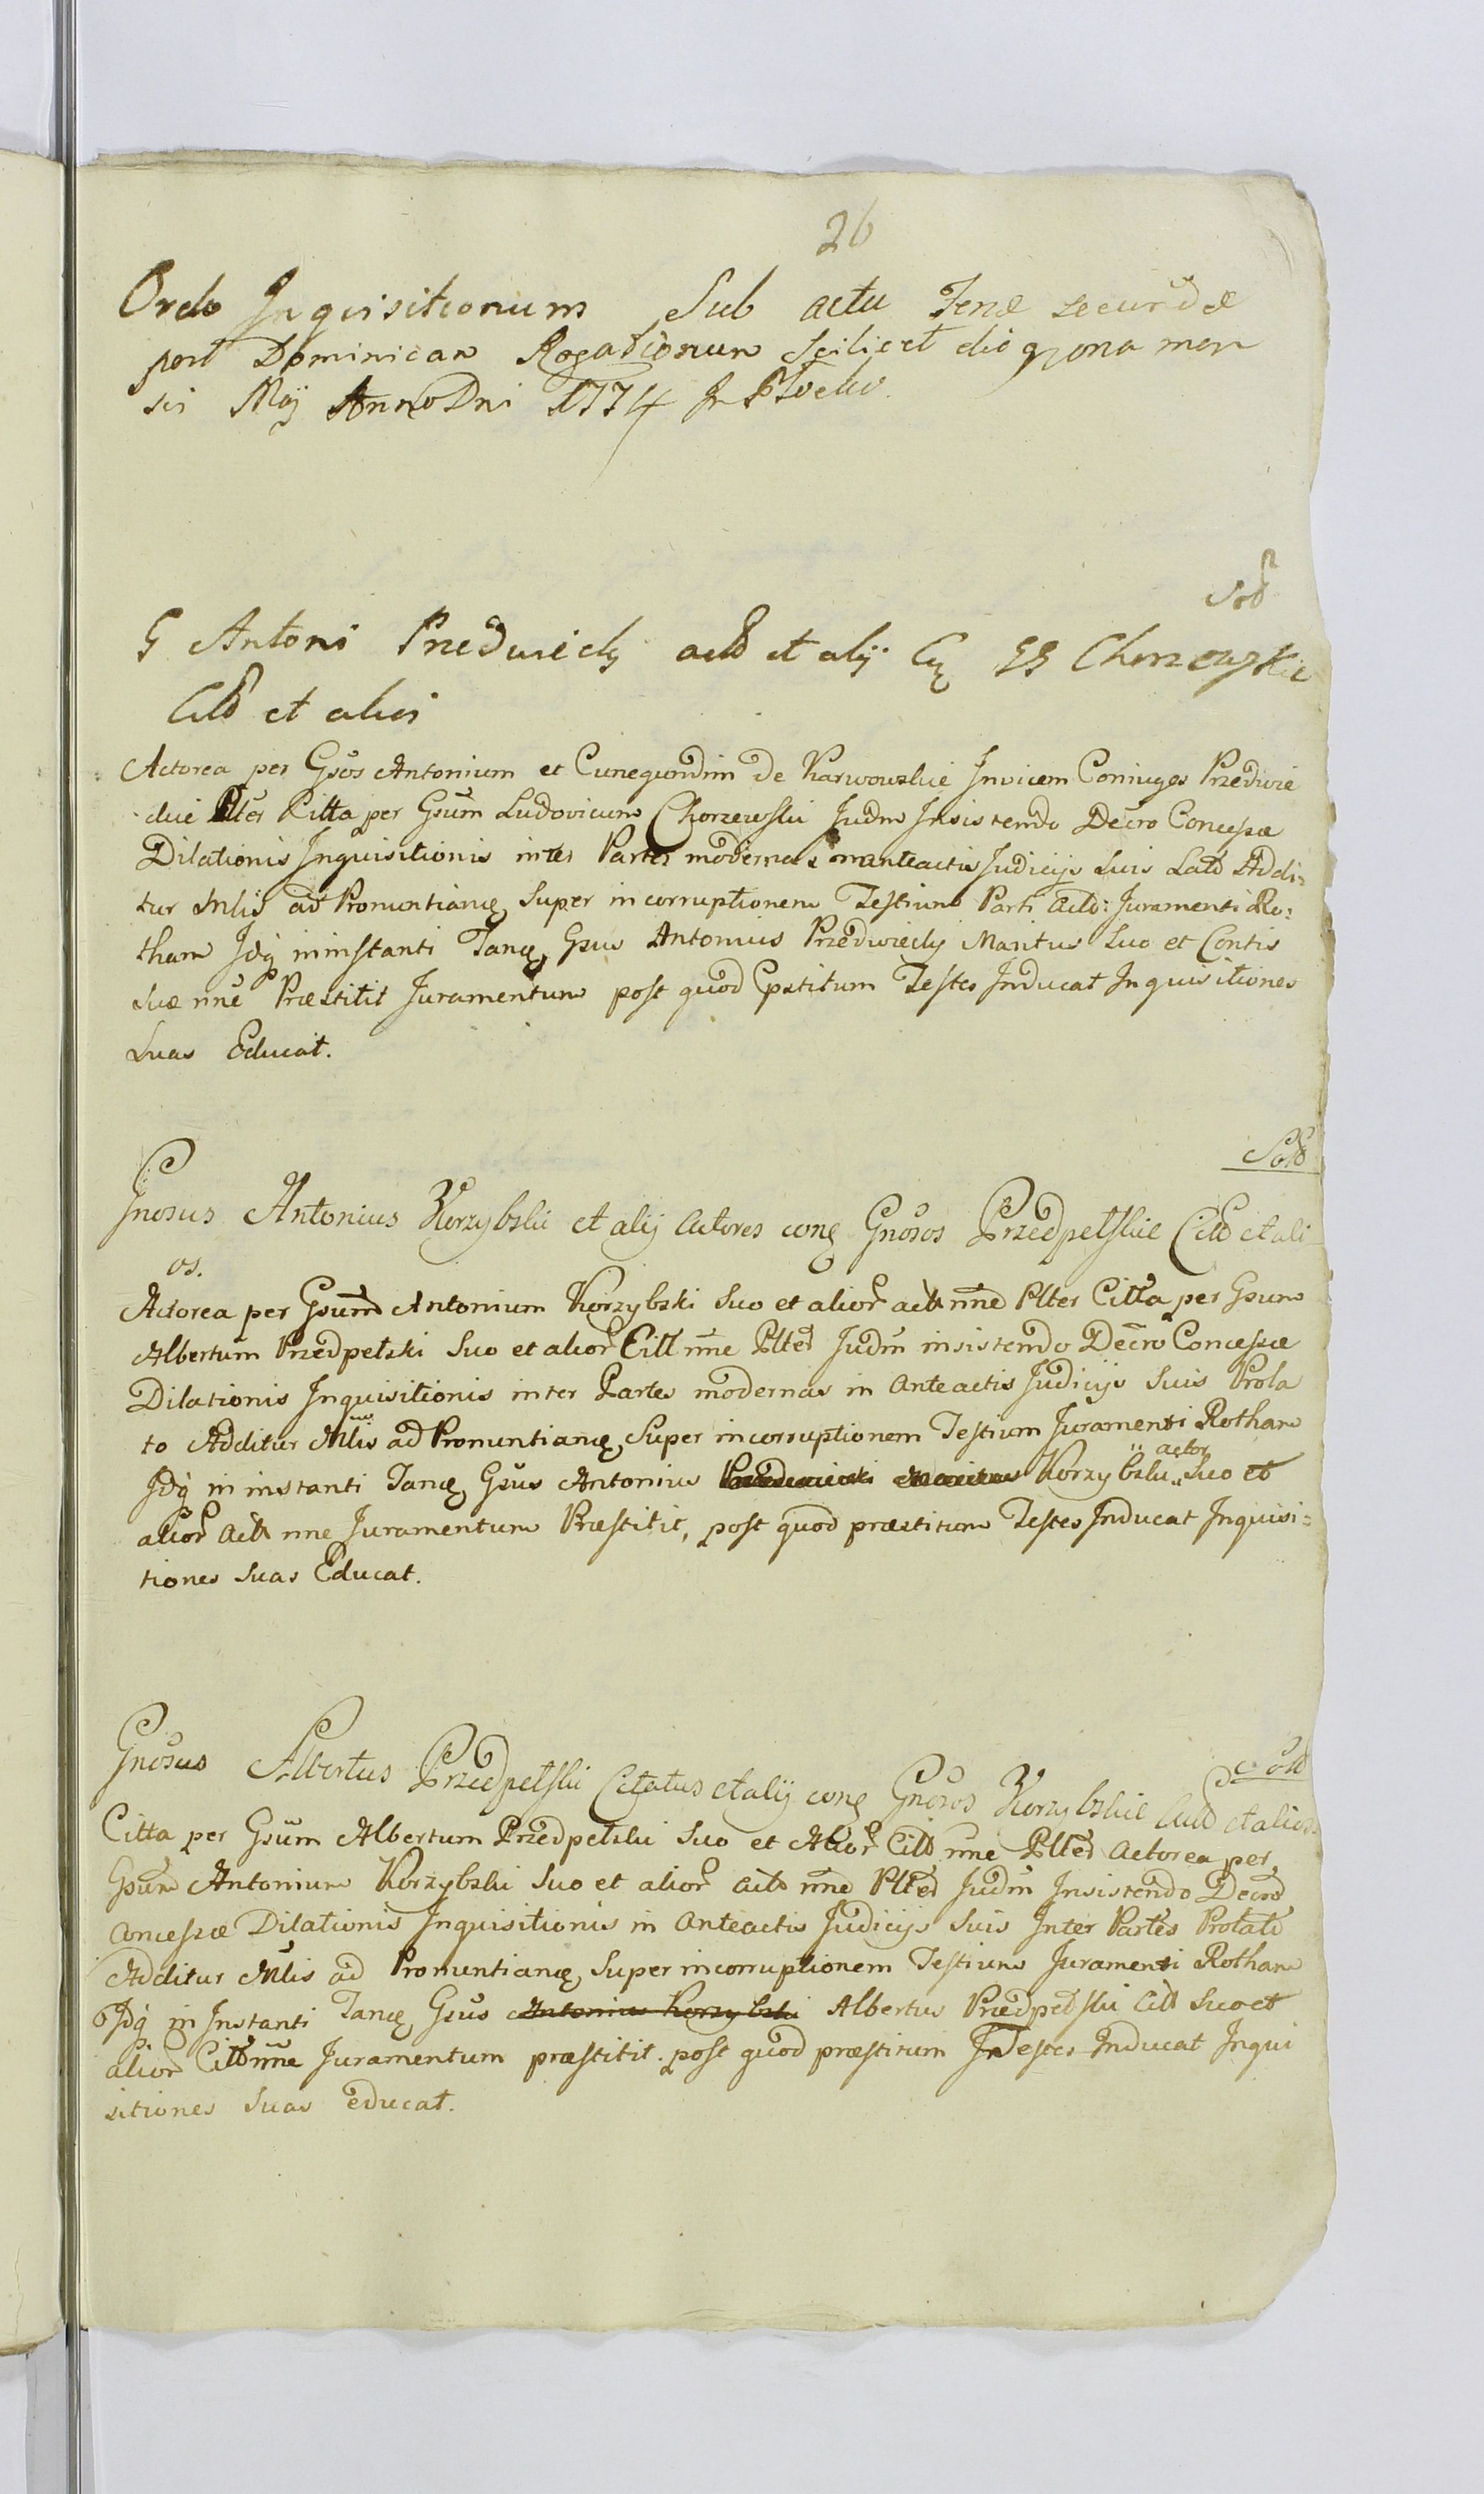 26
Ordo Inquisitionum Sub actu Feriæ secundæ
post Dominicam Rogationum Scilicet die nona men
sis Maij Anno Dni 1774 In Płocko.
Sol
G Antoni Przedwiecky acto et alij Cũ GG Chorzewskie
Citt et alios
Actorea per Gsos Antonium et Cunegundim de Karwowskie Invicem Coniuges Przedwie
ckie Plter Citta per Gsum Ludovicum Chorzewski Judm Insistendo Decro Concessæ
Dilationis Inquisitionis inter Partes modernas in anteactis Judicijs Suis Lato Addi:
tur Mlis ad Pronuntianę Super incorruptionem Testium Parti Acto: Juramenti Ro:
tham Idq in instanti Tanę Gsus Antonius Przedwiecky Maritus Suo et Contis
suæ nne Præstitit Juramentum post quod Pstitum Testes Inducat Inquisitiones
Suas Educat.
Solt
Gnosus Antonius Korzybski et alij Actores conę Gnosos Przedpełskie Citt et ali
os.
Actorea per Gsum Antonium Korzybski Suo et alior actt nne Plter Citta per Gsum
Albertum Przedpełski Suo et alior Citt nne Plter Judm insistendo Decro Concessæ
Dilationis Inquisitionis inter Partes modernas in Anteactis Judicijs Suis Prola
to Additur Mlis ad Pronuntianę Super incorruptionem Testium Juramenti Rotham
Idq in instanti Tanę Gsus Antonius Korzybski actor Suo et
alior Actt nne Juramentum Præstitit, post quod præstitum Testes Inducat Inquisi:
tiones Suas Educat.
Solt
Gnosus Albertus Przedpełski Citatus et alij conę Gnosos Korzybskie Actt et alios
Citta per Gsum Albertum Przedpełski Suo et Alior Citt nne Plter Actorea per
Gsum Antonium Korzybski Suo et alior actt nne Plter Judm Insistendo Decro
Concessæ Dilationis Inquisitionis in Anteactis Judicijs Suis Inter Partes Prolato
Additur Mlis ad Pronuntianę Super incorruptionem Testium Juramenti Rotham
Idq in Instanti Tanę Gsus Antonius Korzybski Albertus Przedpełski Citt Suo et
alior Citt nne Juramentum præstitit. post quod præstitum Testes Inducat Inqui
sitiones Suas educat.